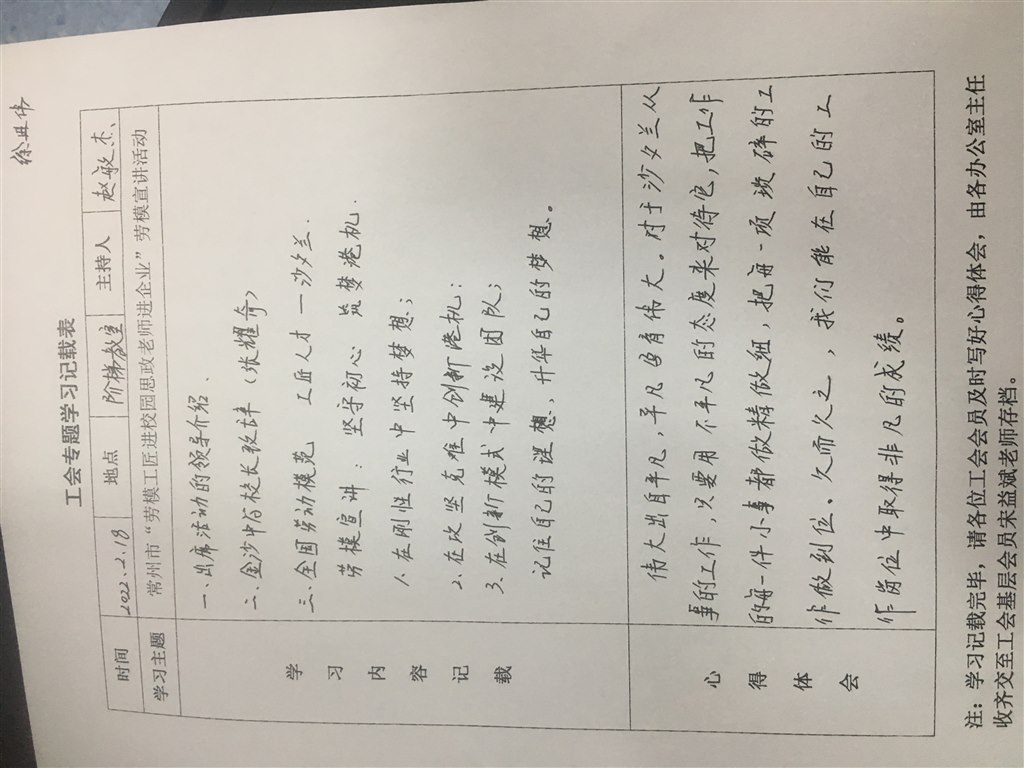 徐丑伟
工会专题学习记载表
时间 2022.2.18 地点 阶梯教室 主持人 赵敏杰、
学习主题 常州市“劳模工匠进校园思政老师进企业”劳模宣讲活动
学习内容记载
一、出席活动的领导介绍、
二、金沙中与校长致辞（张耀奇）
三、全国劳动模范 工匠人才一沙夕兰.
劳模宣讲：坚守初心 筑梦港机.
1、在刚性行业中坚持梦想；
2、在攻坚克难中创新港机；
3、在创新模式中建设团队；
记住自己的理想、升华自己的梦想。
心得体会
伟大出自平凡，平凡孕育伟大。对于沙夕兰从
事的工作，只要用不平凡的态度来对待它，把工作
的每一件小事都做精做细，把每一项琐碎的工
作做到位、久而久之，我们能在自己的工
作岗位中取得非凡的成绩。
注：学习记载完毕，请各位工会会员及时写好心得体会，由各办公室主任
收齐交至工会基层会员宋益斌老师存档。